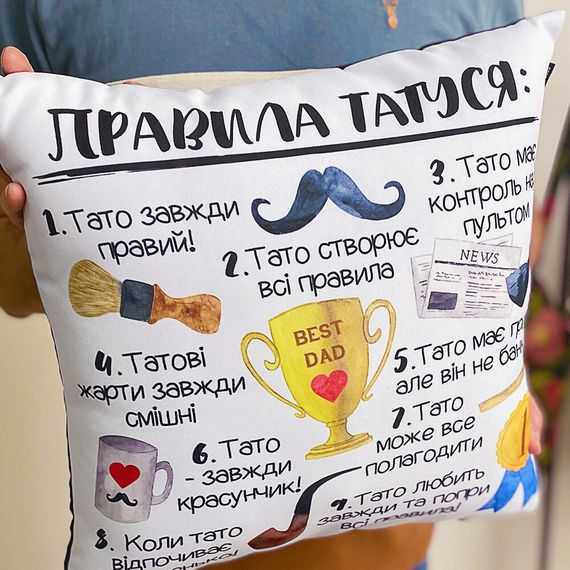 ПРАВИЛА ТАТУСЯ:
1. Тато завжди
правий!
2. Тато створює
всі правила
3. Тато має
контроль на
пультом
NEWS
BEST
DAD
4. Татові
жарти завжди
смішні
5. Тато має
але він не
6. Тато
- завжди
красунчик!
7. Тато
може все
полагодити
8. Коли тато
відпочиває
9. Тато любить
завжди та попри
всі правила!